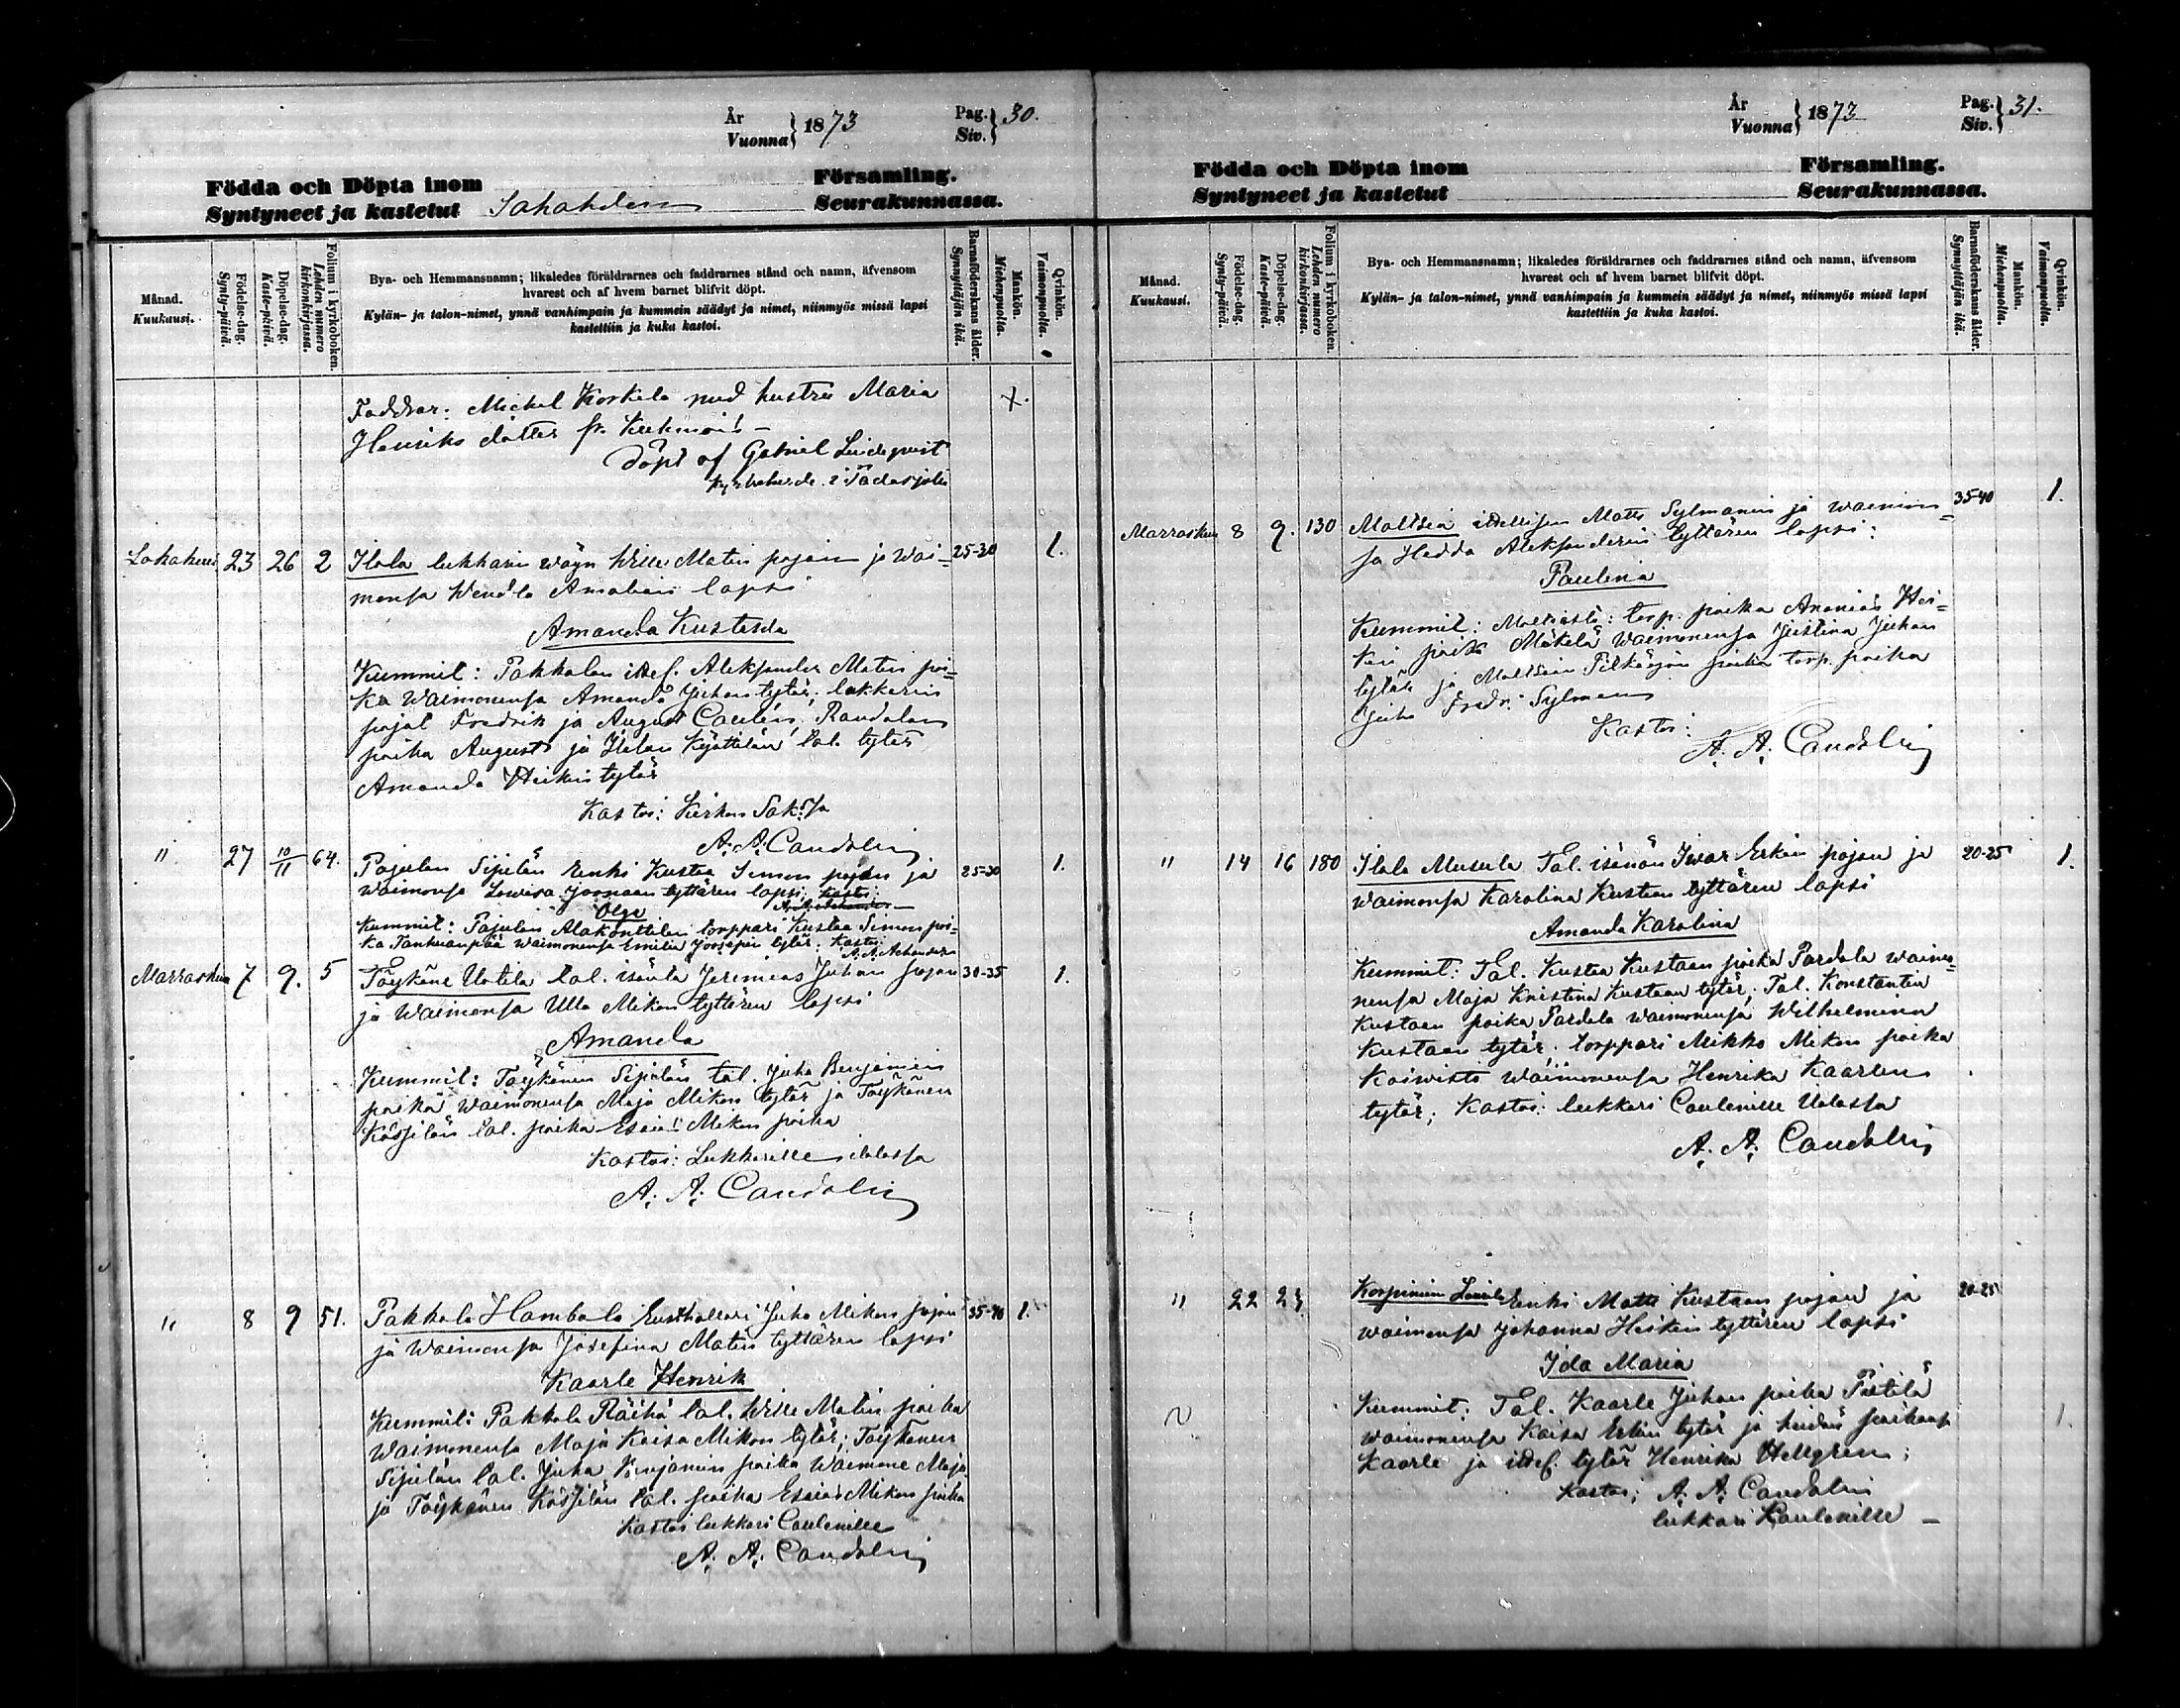 År
Vuonna } 1873
Pag.
Siv. } 30.
Födda och Döpta inom Församling.
Syntyneet ja kastetut Sahahden Seurakunnassa.
Månad.
Kuukausi.
Födelse-dag.
Synty-päivä.
Döpelse-dag.
Kaste-päivä.
Folium i kyrkoboken.
Lehden numero
kirkonkirjassa.
Bya- och Hemmansnamn; likaledes föräldrarnes och faddrarnes stånd och namn, äfvensom
hvarest och af hvem barnet blifvit döpt.
Kylän- ja talon-nimet, ynnä vanhimpain ja kummein säädyt ja nimet, niinmyös missä lapsi
kastettiin ja kuka kastoi.
Barnaföderskans ålder.
Synnyttäjän ikä.
Mankön.
Miehenpuolta.
Qvinkön.
Vaimonpuolta.
Faddrar: Michel Korkela med hustru Maria X.
Henriks dotter fr. Kuhmois –
Döpt af Gabriel Lindqvist
i Padasjoki
Lokakuu 23 26 2 Ilola lukkarin Wille Matin pojan ja wai= 25-30 1.
monsa Wendla Amalian lapsi
Amanda Kustava
Kummit: Pakkalan itsel. Aleksander Matin poi=
ka Waimonensa Amanda Juhan tytär; lukkarin
pojat Fredrik ja August Caulén; Randalan
poika August ja Ilolan tal. tytär
Amanda Heikin tytär
Kastoi: Kirkon Sak:ssa
A. A. Candolin
" 27 10/11 64. Pajulan Sipilän Renki Kustaa Simon pojan ja 25-30 1.
waimonsa Lowisa Joonaan tyttären lapsi; Kastoi:
Olga
Kummit: Pajulan Alakonttilan torppari Kustaa Simon poi-
ka Tankuanpää waimonensa Emilia Joosepin tytär. Kastoi:
Marraskuu 7 9. 5 Töykäne Uotila tal. isäntä Jeremias Juhan pojan 30-35 1.
ja Waimonsa Ulla Mikon tyttären lapsi
Amanda
Kummit: Töykänen Sipilän tal. Juha Benjamin
poika Waimonensa Maja Mikon tytär ja Töykänen
Kössilän tal. poika Esaias Mikon poika
Kastoi: Lukkarille
A. A. Candolin
" 8 9 51. Pakkala Hambala Rusthollari Juha Mikon pojan 35-40 1.
ja Waimonsa Josefina Matin tyttären lapsi
Kaarle Henrik
Kummit: Pakkala Räihä tal. Wille Matin poika
Waimonensa Maja Kaisa Mikon tytär; Töykänen
Sipilän tal. Juha Benjamin poika Waimone Maja
ja Töykänen Kössilän tal. poika Esaias Mikon poika
Kastoi lukkari Caulenille
A. A. Candolin
År
Vuonna } 1873
Pag.
Siv. } 31.
Födda och Döpta inom Församling.
Syntyneet ja kastetut Seurakunnassa.
Månad.
Kuukausi.
Födelse-dag.
Synty-päivä.
Döpelse-dag.
Kaste-päivä.
Folium i kyrkoboken.
Lehden numero
kirkonkirjassa.
Bya- och Hemmansnamn; likaledes föräldrarnes och faddrarnes stånd och namn, äfvensom
hvarest och af hvem barnet blifvit döpt.
Kylän- ja talon-nimet, ynnä vanhimpain ja kummein säädyt ja nimet, niinmyös missä lapsi
kastettiin ja kuka kastoi.
Barnaföderskans ålder.
Synnyttäjän ikä.
Mankön.
Miehenpuolta.
Qvinkön.
Vaimonpuolta.
Marraskuu 8 9. 130 Maltsia itsellisen Matti Sylmanin ja waimon= 35-40 1.
sa Hedda Aleksanderin tyttären lapsi:
Paulina
Kummit: torp. poika Ananias Hei=
kin poika Mäkelä Waimonensa Justina Juhan
tytär ja Maltsian poika torp. poika
Juho Fredr. Sylman
Kastoi:
A. A. Candolin
" 14 16 180 Ilola Musula Tal. isännän Iwar Erkin pojan ja 20-25 1.
waimonsa Karolina Kustaan tyttären lapsi
Amanda Karolina
Kummit: Tal. Kustaa Kustaan poika Pardala waimo=
nensa Maja Kristina Kustaan tytär; Tal. Konstantin
Kustaan poika Pardala waimonensa Wilhelmina
Kustaan tytär; torppari Mikko Mikon poika
Koiwisto Waimonensa Henrika Kaarlen
tytär; Kastoi: lukkari Caulenille
A. A. Candolin
" 22 23 Korpimien Renki Matti Kustaan pojan ja 20-25
waimonsa Johanna Heikin tyttären lapsi
Ida Maria
Kummit: Tal. Kaarle Juhan poika Pietilä 1.
waimonensa Kaisa Erkin tytär ja heidän poikansa
Kaarle ja itsel. tytär Henrika Hellgren;
Kastoi; A. A. Candolin
lukkari Kaulenille –